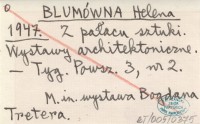 BLUMÓWNA Helena
1947. Z pałacu sztuki.
Wystawy architektoniczne.
— Tyg. Powsz. 3, nr 2.
M. in. wystawa Bogdana
Tretera.